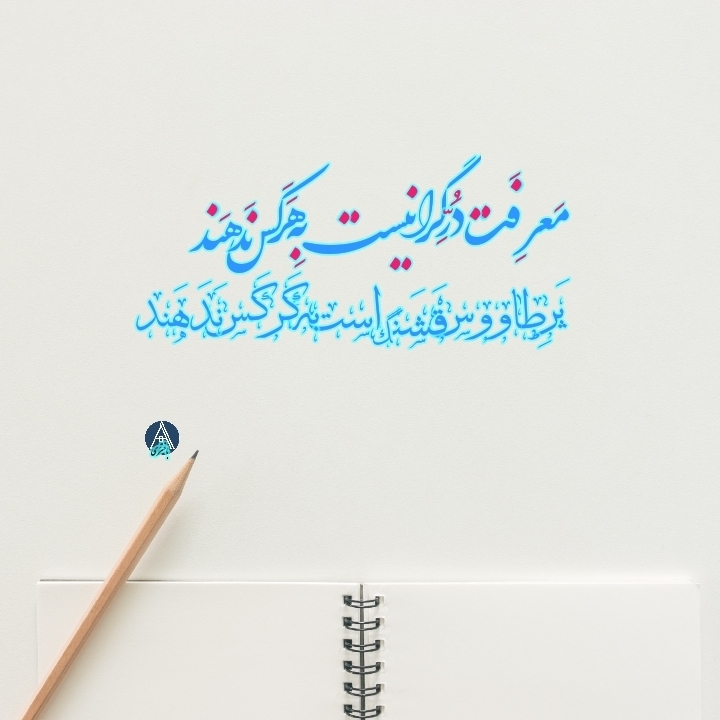 مَعرِفَت دُرِّ گِرانیست بِه هَرکَس نَدَهَند
پَرِ طاووس قَشَنگ است به کَرکَس نَدَهَند